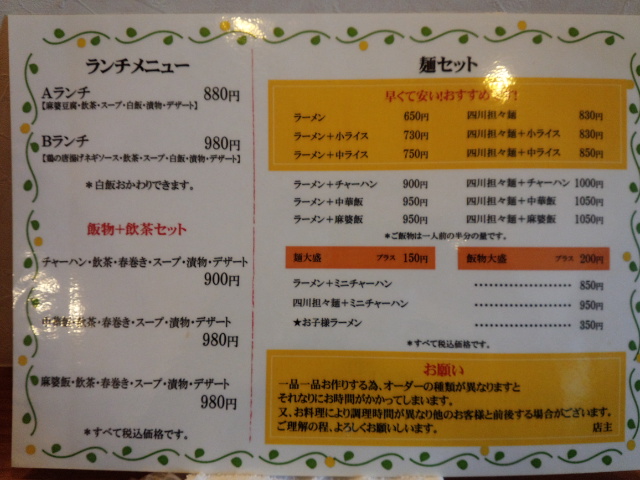 ランチメニュー
Aランチ 880円
【麻婆豆腐・飲茶・スープ・白飯・漬物・デザート】
Bランチ 980円
【鶏の唐揚げネギソース・飲茶・スープ・白飯・漬物・デザート】
＊白飯おかわりできます。
飯物＋飲茶セット
チャーハン・飲茶・春巻き・スープ・漬物・デザート
900円
中華飯・飲茶・春巻き・スープ・漬物・デザート
980円
麻婆飯・飲茶・春巻き・スープ・漬物・デザート
980円
＊すべて税込価格です。
麺セット
早くて安い!おすすめです!
ラーメン 650円 四川担々麺 830円
ラーメン＋小ライス 730円 四川担々麺＋小ライス 830円
ラーメン＋中ライス 750円 四川担々麺＋中ライス 850円
ラーメン＋チャーハン 900円 四川担々麺＋チャーハン 1000円
ラーメン＋中華飯 950円 四川担々麺＋中華飯 1050円
ラーメン＋麻婆飯 950円 四川担々麺＋麻婆飯 1050円
＊ご飯物は一人前の半分の量です。
麺大盛 プラス 150円 飯物大盛 プラス 200円
ラーメン＋ミニチャーハン ・・・・・・・・・・・・・・・・・・ 850円
四川担々麺＋ミニチャーハン ・・・・・・・・・・・・・・・・・・ 950円
★お子様ラーメン ・・・・・・・・・・・・・・・・・・ 350円
＊すべて税込価格です。
お願い
一品一品お作りする為、オーダーの種類が異なりますと
それなりにお時間がかかってしまいます。
又、お料理により調理時間が異なり他のお客様と前後する場合がございます。
ご理解の程、よろしくお願いしいます。 店主